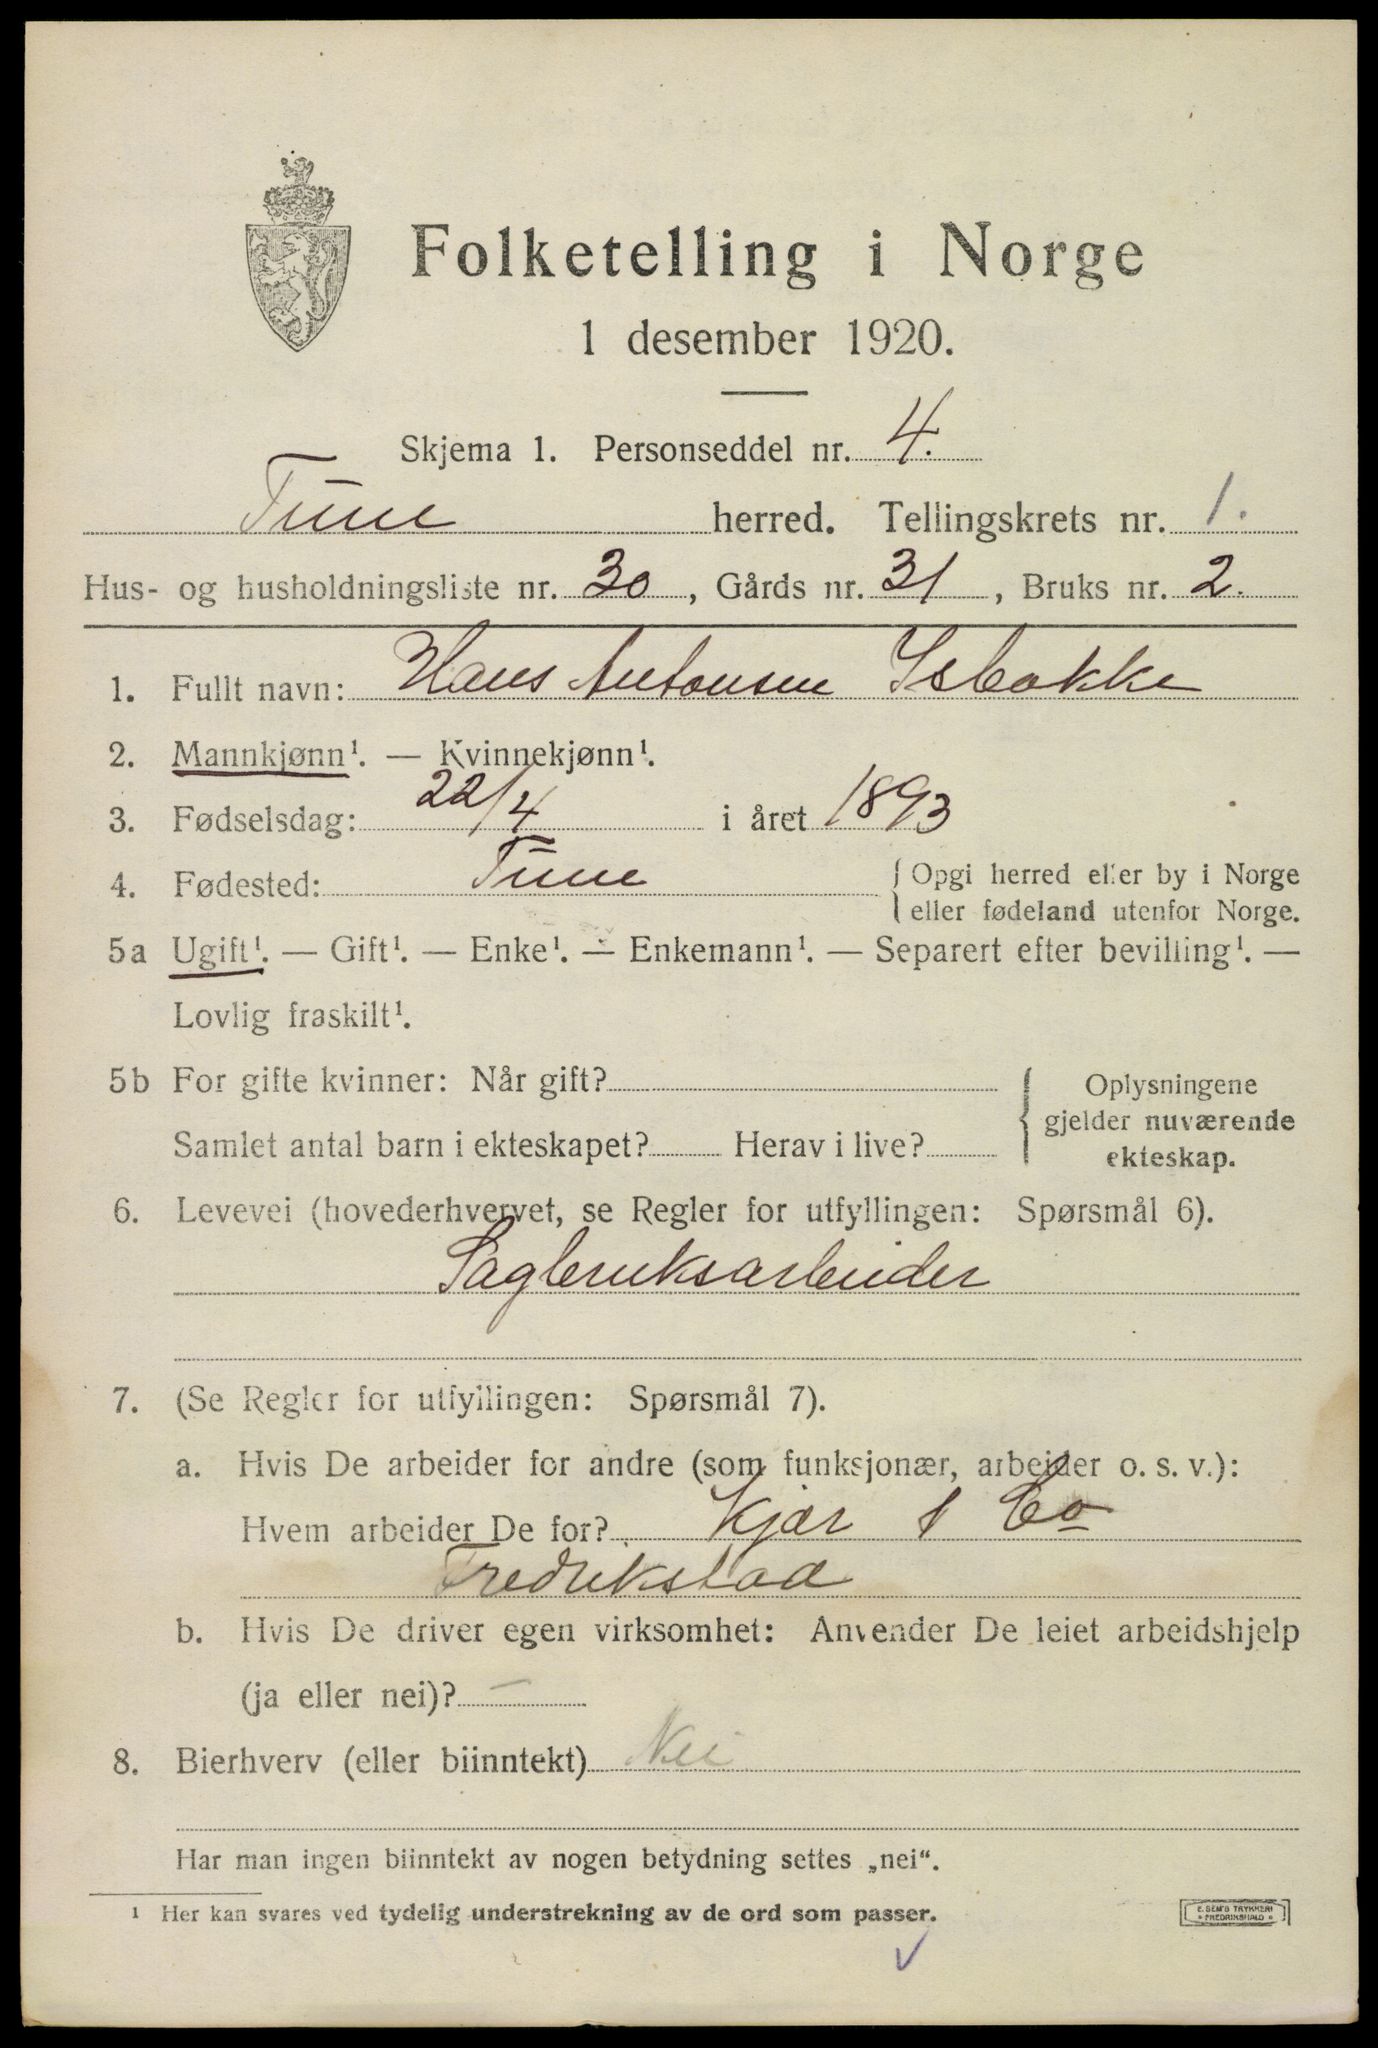 Folketelling i Norge
1 desember 1920.
Skjema 1. Personseddel nr. 4.
Tune herred. Tellingskrets nr. 1.
Hus- og husholdningsliste nr. 30, Gårds nr. 31, Bruks nr. 2.
1. Fullt navn: Hans Antonsen Isbakke
2. Mannkjønn¹. — Kvinnekjønn¹.
3. Fødselsdag: 22/4 i året 1893
4. Fødested: Tune { Opgi herred eller by i Norge
eller fødeland utenfor Norge.
5a Ugift¹. — Gift¹. — Enke¹. — Enkemann¹. — Separert efter bevilling¹. —
Lovlig fraskilt¹.
5b For gifte kvinner: Når gift?
Samlet antal barn i ekteskapet? Herav i live?
Oplysningene
gjelder nuværende
ekteskap.
6. Levevei (hovederhvervet, se Regler for utfyllingen: Spørsmål 6).
Sagbruksarbeider
7. (Se Regler for utfyllingen: Spørsmål 7).
a. Hvis De arbeider for andre (som funksjonær, arbeider o. s. v.):
Hvem arbeider De for? Kjær & Co
Fredrikstad
b. Hvis De driver egen virksomhet: Anvender De leiet arbeidshjelp
(ja eller nei)? —
8. Bierhverv (eller biinntekt) Nei
Har man ingen biinntekt av nogen betydning settes „nei“.
¹ Her kan svares ved tydelig understrekning av de ord som passer.
E. SEM'S TRYKKERI
• FREDRIKSHALD •